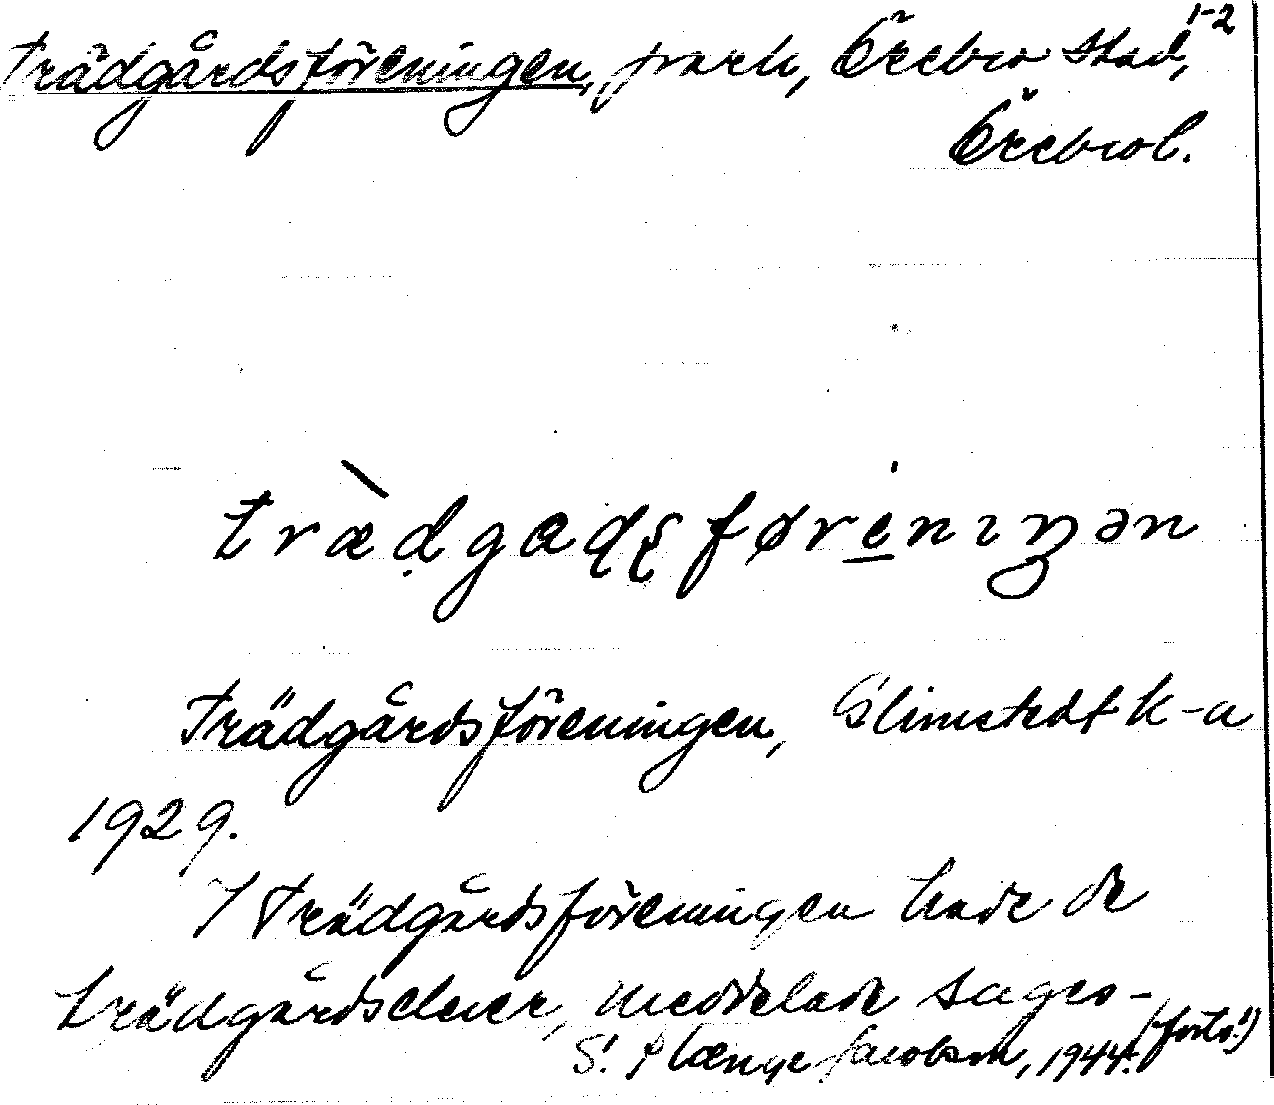 Trädgårdsföreningen, park, Örebro stad, 1-2
Örebro l.
trædgaɖʂførenıŋən
Trädgårdsföreningen, Glimstedt k-a
1929.
I Trädgårdsföreningen hade de
trädgårdselever, meddelade sages-
S. Plænge Jacobson, 1944. (forts.!)